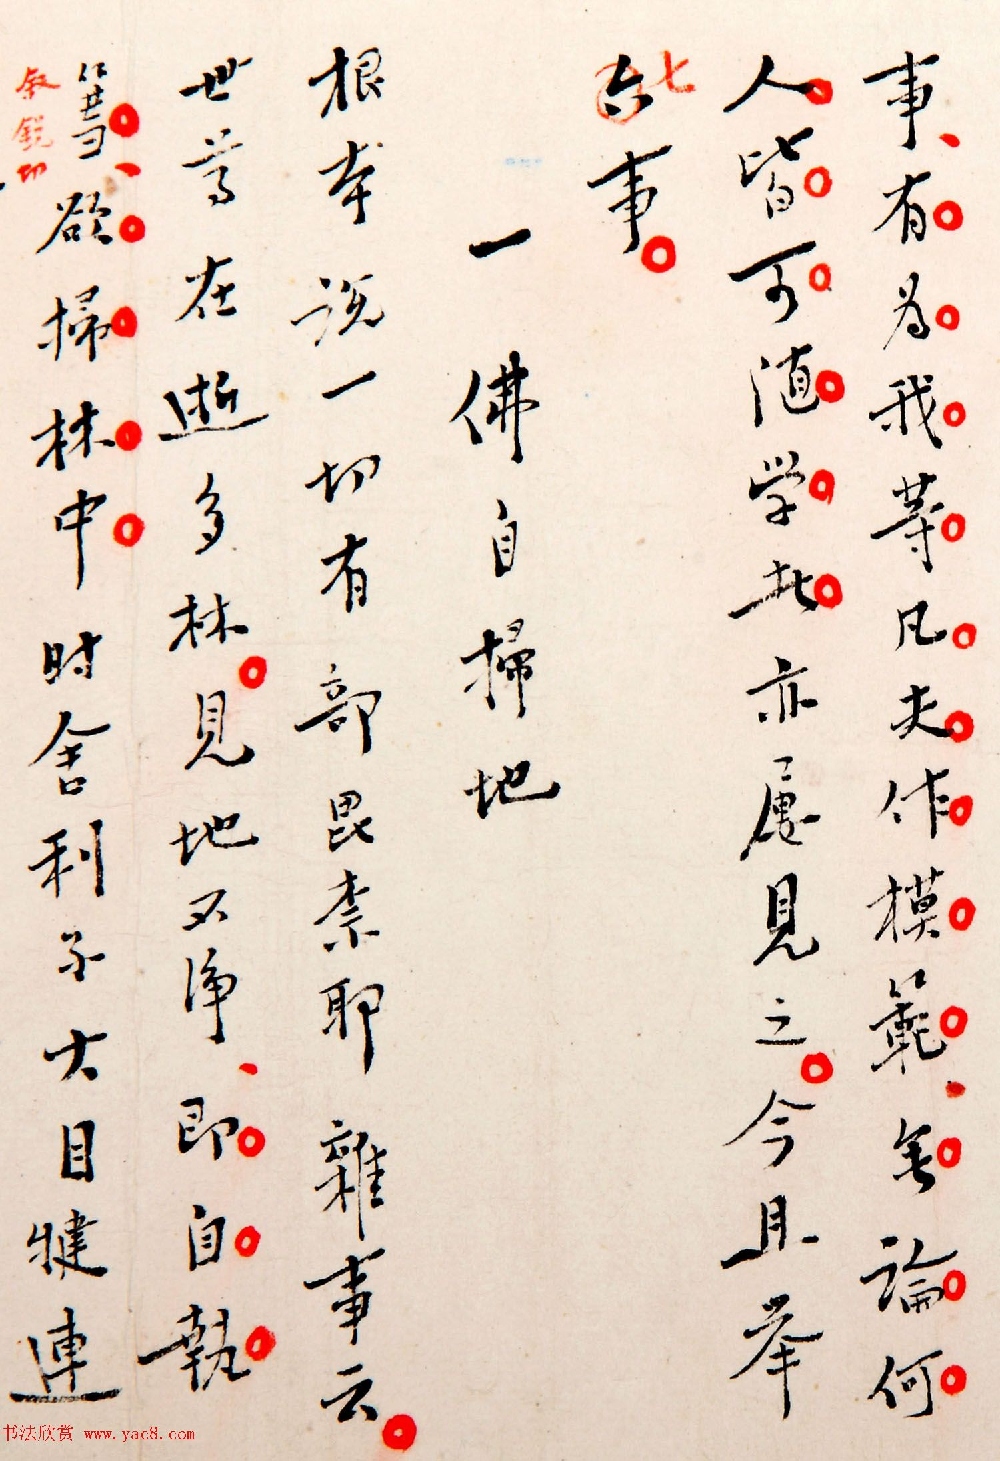 事、有為我等凡夫作模範、無論何
人皆可随学、此亦屢見之。今且举
七
六事。
一 佛自掃地
根本說一切有部毘柰耶雜事云。
世尊在逝多林。見地不淨、即自執
篲、欲掃林中时舍利子大目犍連
叙銳切
书法欣赏 www.yac8.com